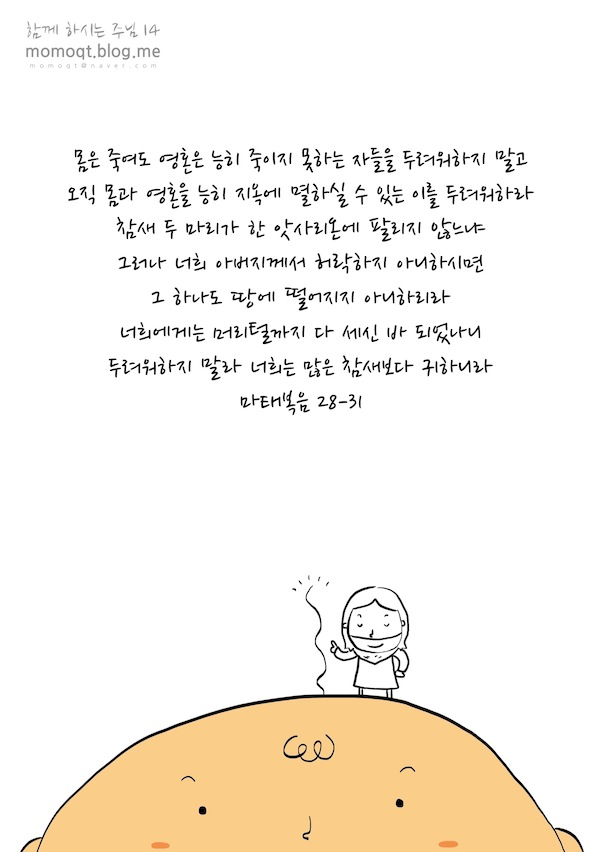 함께 하시는 주님 14
momoqt.blog.me
momoqt@naver.com
몸은 죽여도 영혼은 능히 죽이지 못하는 자들을 두려워하지 말고
오직 몸과 영혼을 능히 지옥에 멸하실 수 있는 이를 두려워하라
참새 두 마리가 한 앗사리온에 팔리지 않느냐
그러나 너희 아버지께서 허락하지 아니하시면
그 하나도 땅에 떨어지지 아니하리라
너희에게는 머리털까지 다 세신 바 되었나니
두려워하지 말라 너희는 많은 참새보다 귀하니라
마태복음 28-31